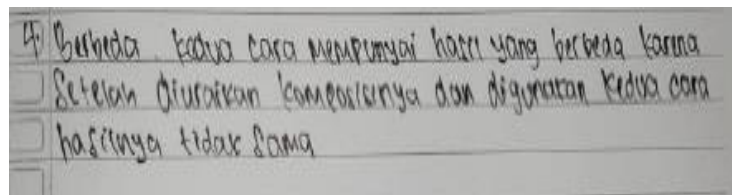 4. Berbeda. kedua cara mempunyai hasil yang berbeda karena
Setelah diuraikan komposisinya dan digunakan kedua cara
hasilnya tidak sama